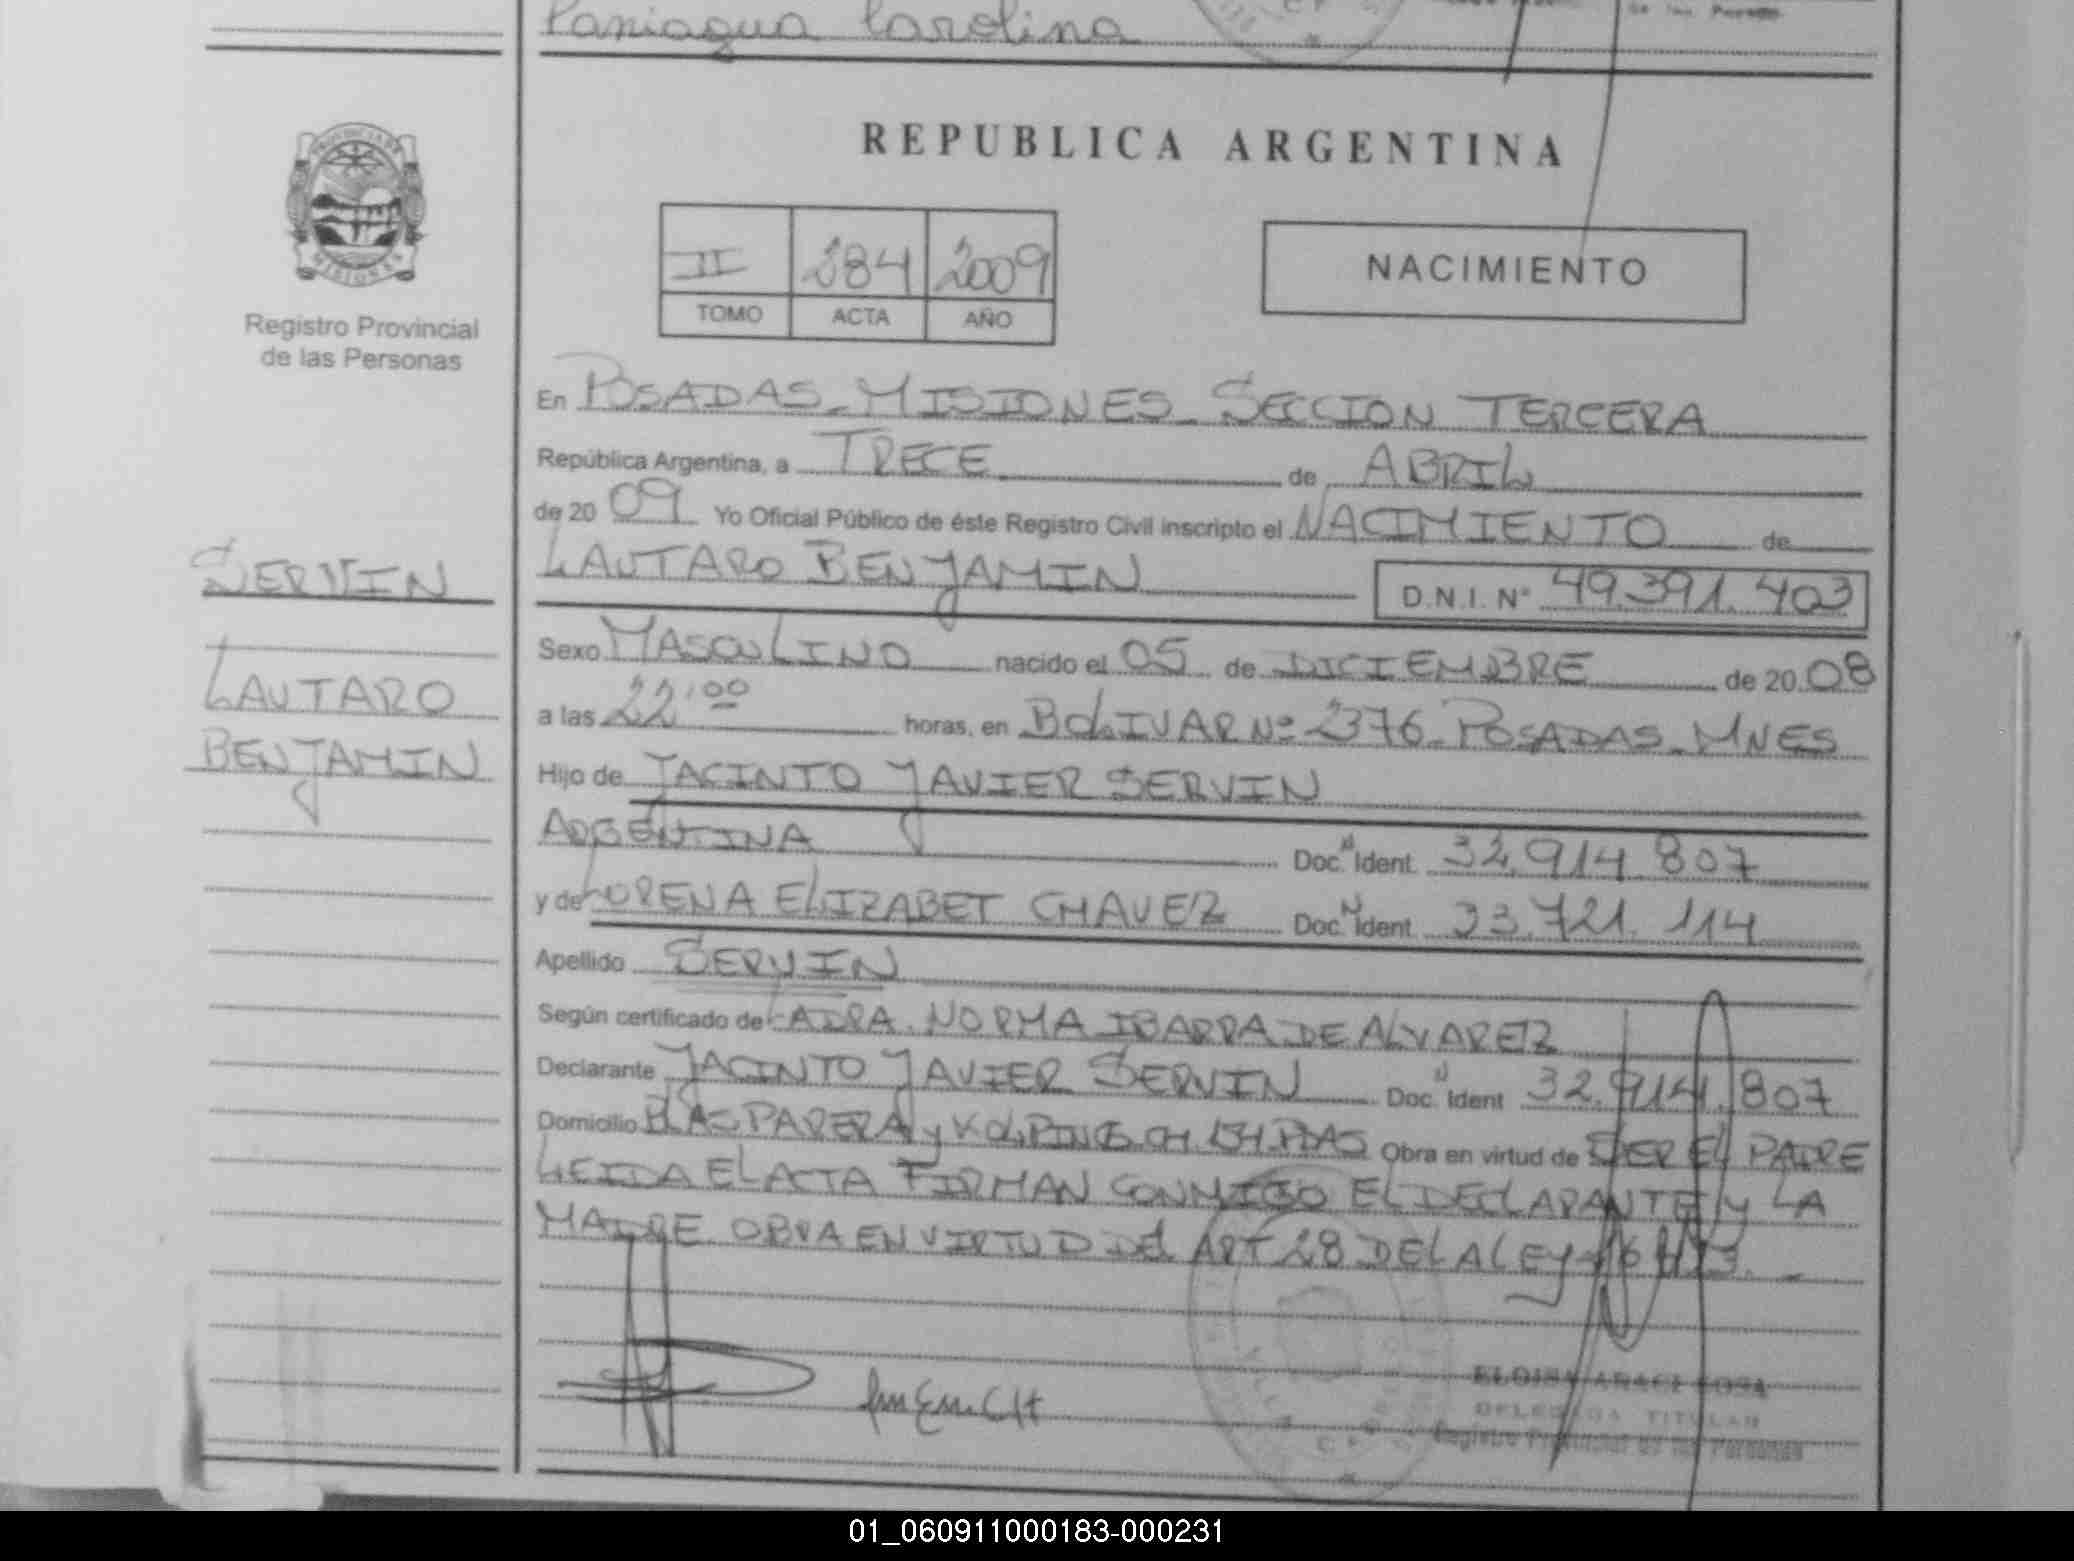 Paniagua Carolina
de las Personas
PROVINCIA DE
MISIONES
Registro Provincial
de las Personas
SERVIN
LAUTARO
BENJAMIN
REPUBLICA ARGENTINA
II 284 2009
TOMO ACTA AÑO
NACIMIENTO
En POSADAS - MISIONES - SECCION TERCERA
República Argentina, a TRECE de ABRIL
de 2009 Yo Oficial Público de éste Registro Civil inscripto el NACIMIENTO de
LAUTARO BENJAMIN D.N.I. Nº 49.391.403
Sexo MASCULINO nacido el 05 de DICIEMBRE de 2008
a las 22:00 horas, en BOLIVAR Nº 2376 - POSADAS - MNES
Hijo de JACINTO JAVIER SERVIN
ARGENTINA Doc. Ident. 32.914.807
y de LORENA ELIZABET CHAVEZ Doc. Ident. 33.721.114
Apellido SERVIN
Según certificado de LA DRA. NORMA IBARRA DE ALVAREZ
Declarante JACINTO JAVIER SERVIN Doc. Ident 32.914.807
Domicilio BLAS PARERA y CH. PDAS Obra en virtud de SER EL PADRE
LEIDA EL ACTA FIRMAN CONMIGO EL DECLARANTE y LA
MADRE OBRA EN VIRTUD DEL ART 28 DE LA LEY
ELOISA ARACI SOSA
DELEGADA TITULAR
Registro Provincial de las Personas
01_060911000183-000231